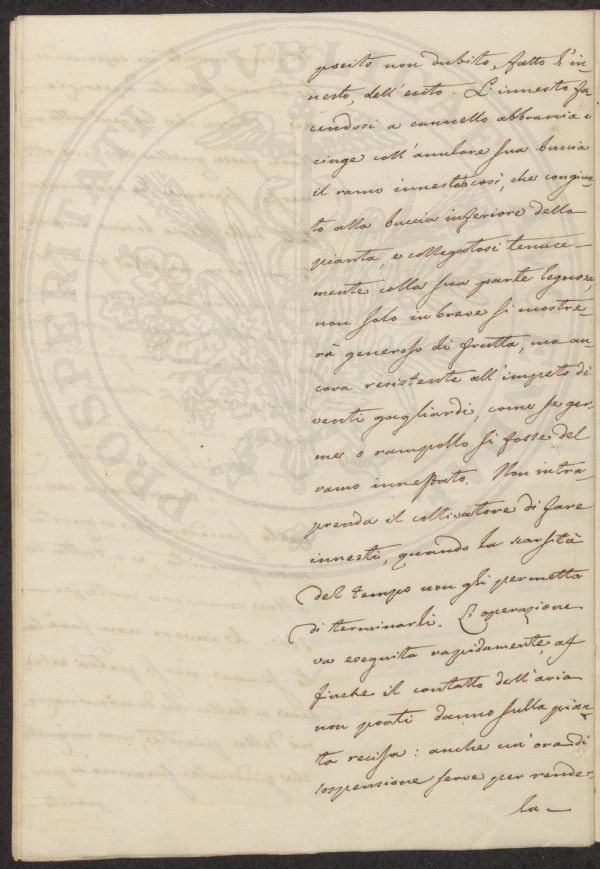 posito non dubito, fatto l'in-
nesto, dell'esito. L'innesto fa-
cendosi a cannello abbraccia e
cinge coll'anulare sua buccia
il ramo innestato così, che congiun-
to alla buccia inferiore della
pianta, e collegatosi tenace-
mente colla sua parte legnosa,
non solo in breve si mostre-
rà generoso di frutta, ma an-
cora resistente all'impeto di
venti gagliardi, come se ger-
me o rampollo si fosse del
ramo innestato. Non intra-
prenda il coltivatore di fare
innesti, quando la scarsità
del tempo non gli permetta
di terminarli. L'operazione
va eseguita rapidamente, af-
finche il contatto dell'aria
non porti danno sulla pian-
ta recisa: anche un'ora di
sospensione serve per render-
la-
PROSPERITATI PUBLICAE